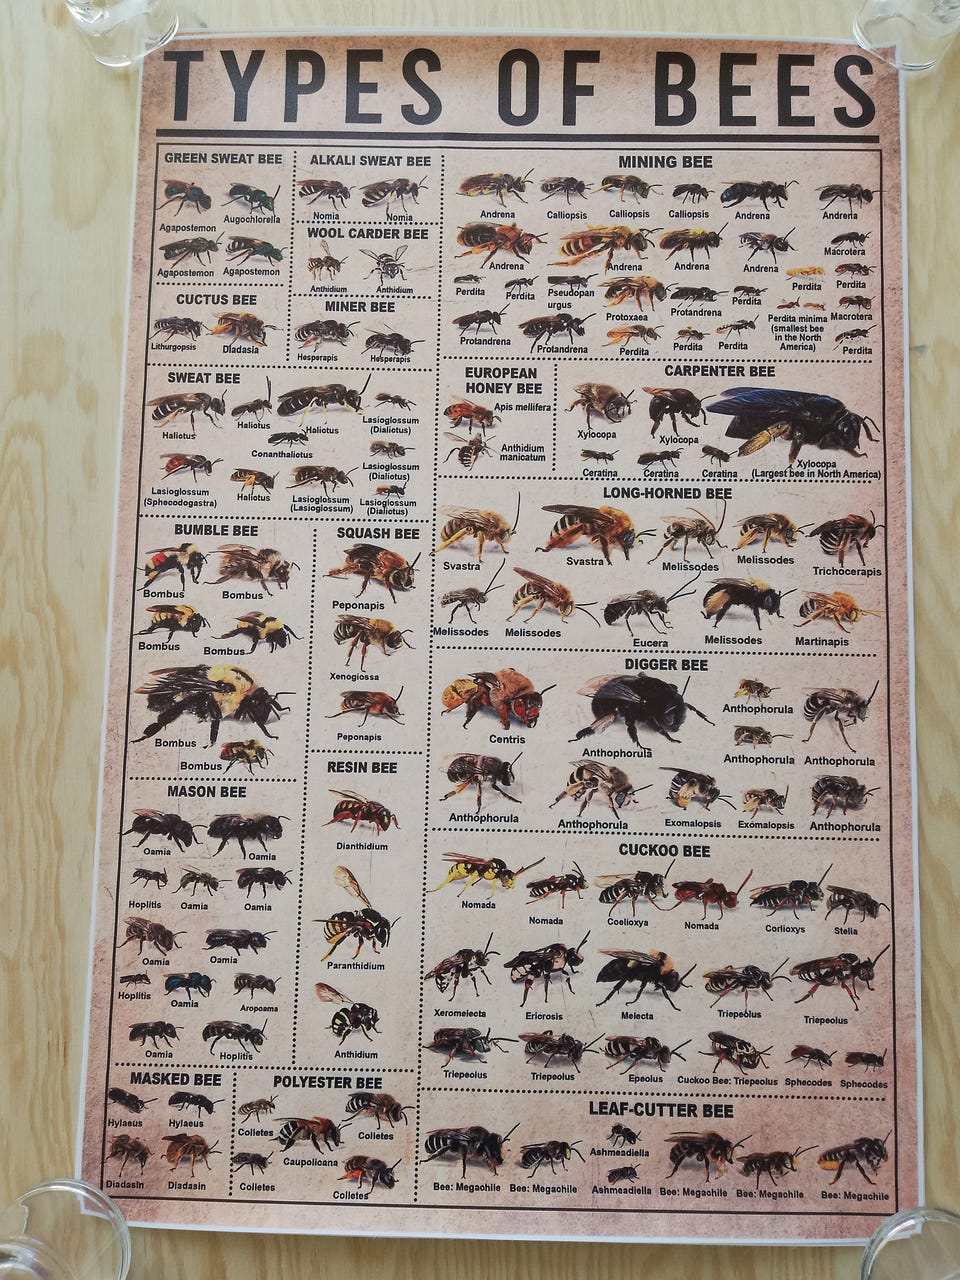 TYPES OF BEES
GREEN SWEAT BEE
Agapostemon
Augochlorella
Agapostemon
Agapostemon
ALKALI SWEAT BEE
Nomia
Nomia
WOOL CARDER BEE
Anthidium
Anthidium
CUCTUS BEE
Lithurgopsis
Diadasia
MINER BEE
Hesperapis
Hesperapis
MINING BEE
Andrena
Calliopsis
Calliopsis
Calliopsis
Andrena
Andrena
Andrena
Andrena
Andrena
Andrena
Macrotera
Perdita
Perdita
Pseudopan
urgus
Protoxaea
Protandrena
Perdita
Perdita
Perdita
Perdita minima
(smallest bee
in the North
America)
Macrotera
Protandrena
Protandrena
Perdita
Perdita
Perdita
Perdita
SWEAT BEE
Haliotus
Haliotus
Haliotus
Lasioglossum
(Dialiotus)
Conanthaliotus
Lasioglossum
(Dialiotus)
Lasioglossum
(Sphecodogastra)
Haliotus
Lasioglossum
(Lasioglossum)
Lasioglossum
(Dialiotus)
EUROPEAN
HONEY BEE
Apis mellifera
Anthidium
manicatum
CARPENTER BEE
Xylocopa
Xylocopa
Xylocopa
(Largest bee in North America)
Ceratina
Ceratina
Ceratina
LONG-HORNED BEE
Svastra
Svastra
Melissodes
Melissodes
Trichocerapis
Melissodes
Melissodes
Eucera
Melissodes
Martinapis
BUMBLE BEE
Bombus
Bombus
Bombus
Bombus
Bombus
Bombus
SQUASH BEE
Peponapis
Xenogiossa
Peponapis
RESIN BEE
Dianthidium
Paranthidium
Anthidium
DIGGER BEE
Centris
Anthophorula
Anthophorula
Anthophorula
Anthophorula
Anthophorula
Anthophorula
Exomalopsis
Exomalopsis
Anthophorula
MASON BEE
Oamia
Oamia
Hoplitis
Oamia
Oamia
Oamia
Oamia
Hoplitis
Oamia
Aropoama
Oamia
Hoplitis
CUCKOO BEE
Nomada
Nomada
Coelioxya
Nomada
Corlioxys
Stelia
Xeromelecta
Eriorosis
Melecta
Triepeolus
Triepeolus
Triepeolus
Triepeolus
Epeolus
Cuckoo Bee: Triepeolus
Sphecodes
Sphecodes
MASKED BEE
Hylaeus
Hylaeus
Diadasin
Diadasin
POLYESTER BEE
Colletes
Colletes
Caupolicana
Colletes
Colletes
LEAF-CUTTER BEE
Bee: Megachile
Bee: Megachile
Ashmeadiella
Ashmeadiella
Bee: Megachile
Bee: Megachile
Bee: Megachile